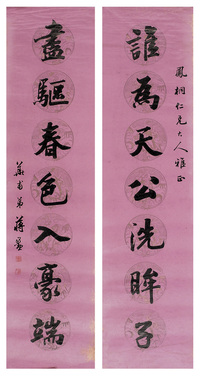 鳳桐仁兄大人雅正
誰為天公洗眸子
盡驅春色入豪端
弟蔣